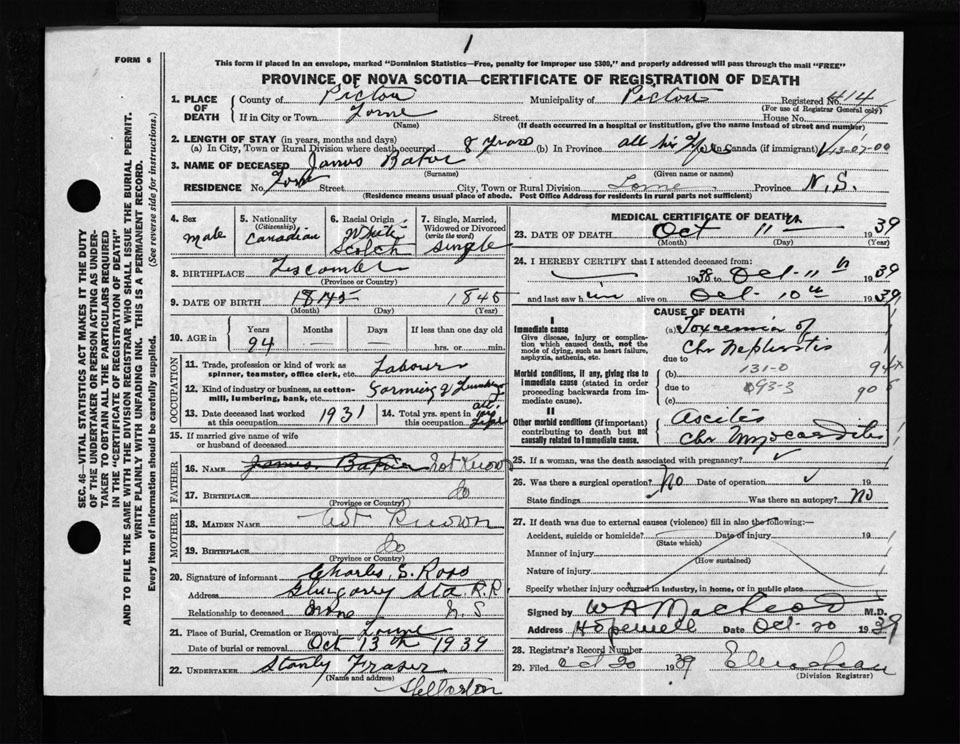 1
FORM 6
This form if placed in an envelope, marked "Dominion Statistics—Free, penalty for improper use $300," and properly addressed will pass through the mail "FREE"
PROVINCE OF NOVA SCOTIA—CERTIFICATE OF REGISTRATION OF DEATH
SEC. 46—VITAL STATISTICS ACT MAKES IT THE DUTY
OF THE UNDERTAKER OR PERSON ACTING AS UNDER-
TAKER TO OBTAIN ALL THE PARTICULARS REQUIRED
IN THE "CERTIFICATE OF REGISTRATION OF DEATH"
AND TO FILE THE SAME WITH THE DIVISION REGISTRAR WHO SHALL ISSUE THE BURIAL PERMIT.
WRITE PLAINLY WITH UNFADING INK. THIS IS A PERMANENT RECORD.
Every item of information should be carefully supplied. (See reverse side for instructions.)
1. PLACE OF DEATH County of Pictou Municipality of Pictou Registered No. 414
(For use of Registrar General only)
If in City or Town Lorne Street House No.
(Name) (If death occurred in a hospital or institution, give the name instead of street and number)
2. LENGTH OF STAY (in years, months and days)
(a) In City, Town or Rural Division where death occurred 8 years (b) In Province all his Canada (if immigrant) 13-07-00
3. NAME OF DECEASED James
(Surname) (Given name or names)
RESIDENCE No. Street City, Town or Rural Division Lorne Province N.S.
(Residence means usual place of abode. Post Office Address for residents in rural parts not sufficient)
4. Sex Male
5. Nationality (Citizenship) Canadian
6. Racial Origin White Scotch
7. Single, Married, Widowed or Divorced (write the word) Single
8. BIRTHPLACE Liscomb
(Province or Country)
9. DATE OF BIRTH 1845 1845
(Month) (Day) (Year)
10. AGE in Years Months Days If less than one day old
94 — — hrs. or min.
OCCUPATION
11. Trade, profession or kind of work as spinner, teamster, office clerk, etc. Labour
12. Kind of industry or business, as cotton-mill, lumbering, bank, etc. Farming & Lumber
13. Date deceased last worked at this occupation 1931
14. Total yrs. spent in this occupation all
15. If married give name of wife or husband of deceased
FATHER
16. NAME James Not Known
17. BIRTHPLACE Do
(Province or Country)
MOTHER
18. MAIDEN NAME Not Known
19. BIRTHPLACE Do
(Province or Country)
20. Signature of informant Charles S. Ross
Address Glengarry Sta R.R.
Relationship to deceased None N.S
21. Place of Burial, Cremation or Removal Lorne
Date of burial or removal Oct 13th 1939
22. UNDERTAKER Stanly Fraser
(Name and address)
Stellarton
MEDICAL CERTIFICATE OF DEATH
23. DATE OF DEATH Oct 11th 1939
(Month) (Day) (Year)
24. I HEREBY CERTIFY that I attended deceased from:
1938 to Oct. 11th 1939
and last saw him alive on Oct. 10th 1939
CAUSE OF DEATH
I
Immediate cause
Give disease, injury or complication which caused death, not the mode of dying, such as heart failure, asphyxia, asthenia, etc.
(a) Toxaemia of
Chr Nephritis
due to
Morbid conditions, if any, giving rise to immediate cause (stated in order proceeding backwards from immediate cause).
(b) 131-0 94
due to 093-3 90
(c)
II
Other morbid conditions (if important) contributing to death but not causally related to immediate cause.
Ascitis
Chr Myocarditis
25. If a woman, was the death associated with pregnancy?
26. Was there a surgical operation? No Date of operation 19
State findings Was there an autopsy? No
27. If death was due to external causes (violence) fill in also the following:
Accident, suicide or homicide? Date of injury 19
(State which)
Manner of injury
(How sustained)
Nature of injury
Specify whether injury occurred in industry, in home, or in public place
Signed by W A MacLeod M.D.
Address Hopewell Date Oct. 20 1939
28. Registrar's Record Number
29. Filed Oct 20 1939
(Division Registrar)